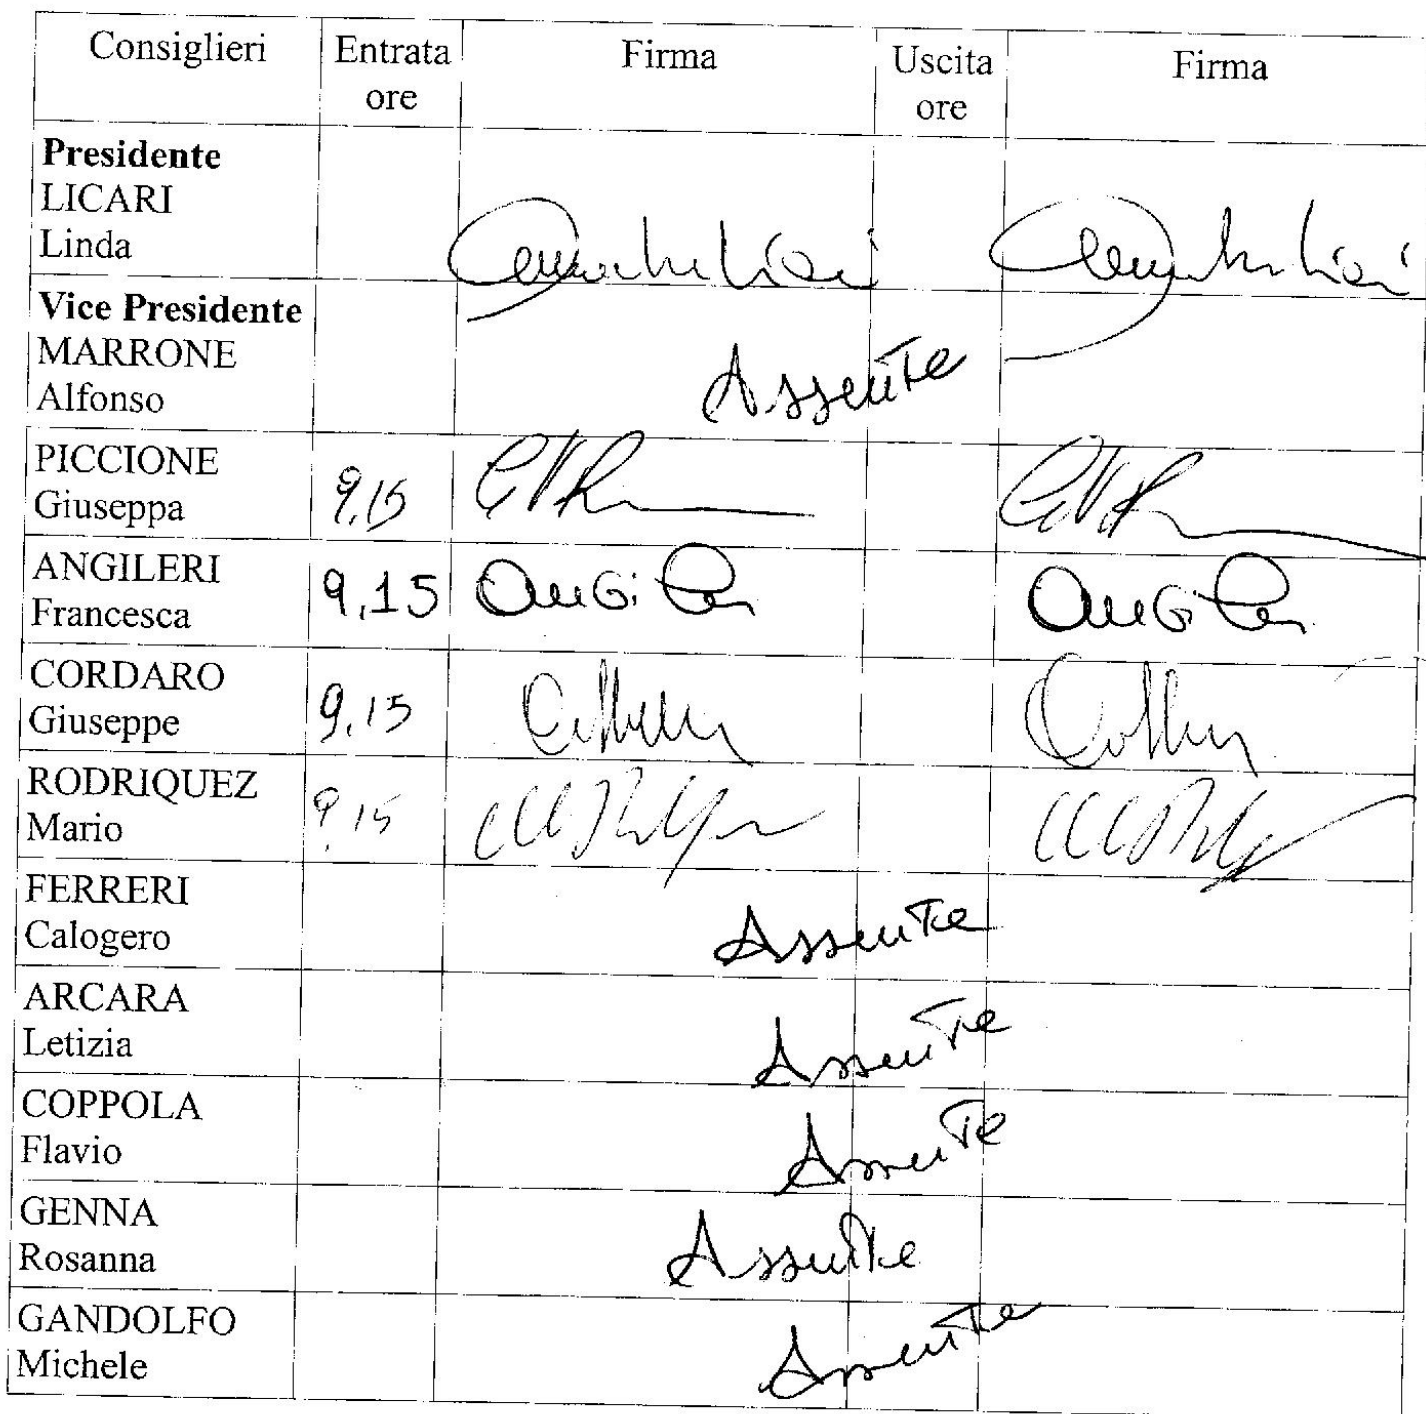 Consiglieri Entrata ore Firma Uscita ore Firma
Presidente
LICARI
Linda
Vice Presidente
MARRONE
Alfonso Assente
PICCIONE
Giuseppa 9,15
ANGILERI
Francesca 9,15 Angileri Angileri
CORDARO
Giuseppe 9,15
RODRIQUEZ
Mario 9,15
FERRERI
Calogero Assente
ARCARA
Letizia Assente
COPPOLA
Flavio Assente
GENNA
Rosanna Assente
GANDOLFO
Michele Assente